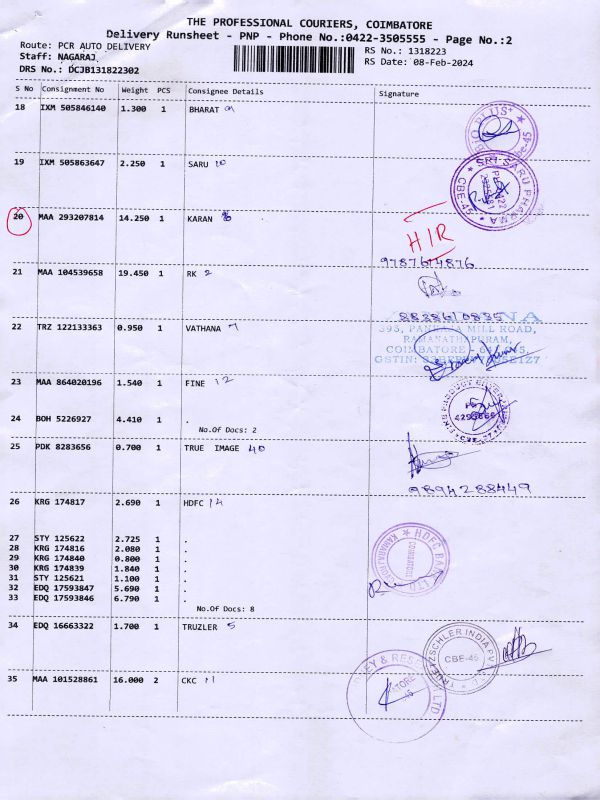 THE PROFESSIONAL COURIERS, COIMBATORE
Delivery Runsheet - PNP - Phone No.:0422-3505555 - Page No.:2
Route: PCR AUTO DELIVERY
RS No.: 1318223
Staff: NAGARAJ
RS Date: 08-Feb-2024
DRS No.: DCJB131822302
S No Consignment No Weight PCS Consignee Details Signature
18 IXM 505846140 1.300 1 BHARAT 9
19 IXM 505863647 2.250 1 SARU 10
SRI SARU PHARMA
CBE-45
20 MAA 293207814 14.250 1 KARAN
HIR
9787674876
21 MAA 104539658 19.450 1 RK 2
8838610835
22 TRZ 122133363 0.950 1 VATHANA 7
393, PANKAJA MILL ROAD,
RAMANATHAPURAM,
COIMBATORE
GSTIN:
23 MAA 864020196 1.540 1 FINE 12
24 BOH 5226927 4.410 1 .
No.Of Docs: 2
25 PDK 8283656 0.700 1 TRUE IMAGE 40
9894288449
26 KRG 174817 2.690 1 HDFC 14
27 STY 125622 2.725 1 .
28 KRG 174816 2.080 1 .
29 KRG 174840 0.800 1 .
30 KRG 174839 1.840 1 .
31 STY 125621 1.100 1 .
32 EDQ 17593847 5.690 1 .
33 EDQ 17593846 6.790 1 .
HDFC BANK LTD
COIMBATORE
No.Of Docs: 8
34 EDQ 16663322 1.700 1 TRUZLER 5
TRUETZSCHLER INDIA PVT
CBE-45
35 MAA 101528861 16.000 2 CKC 11